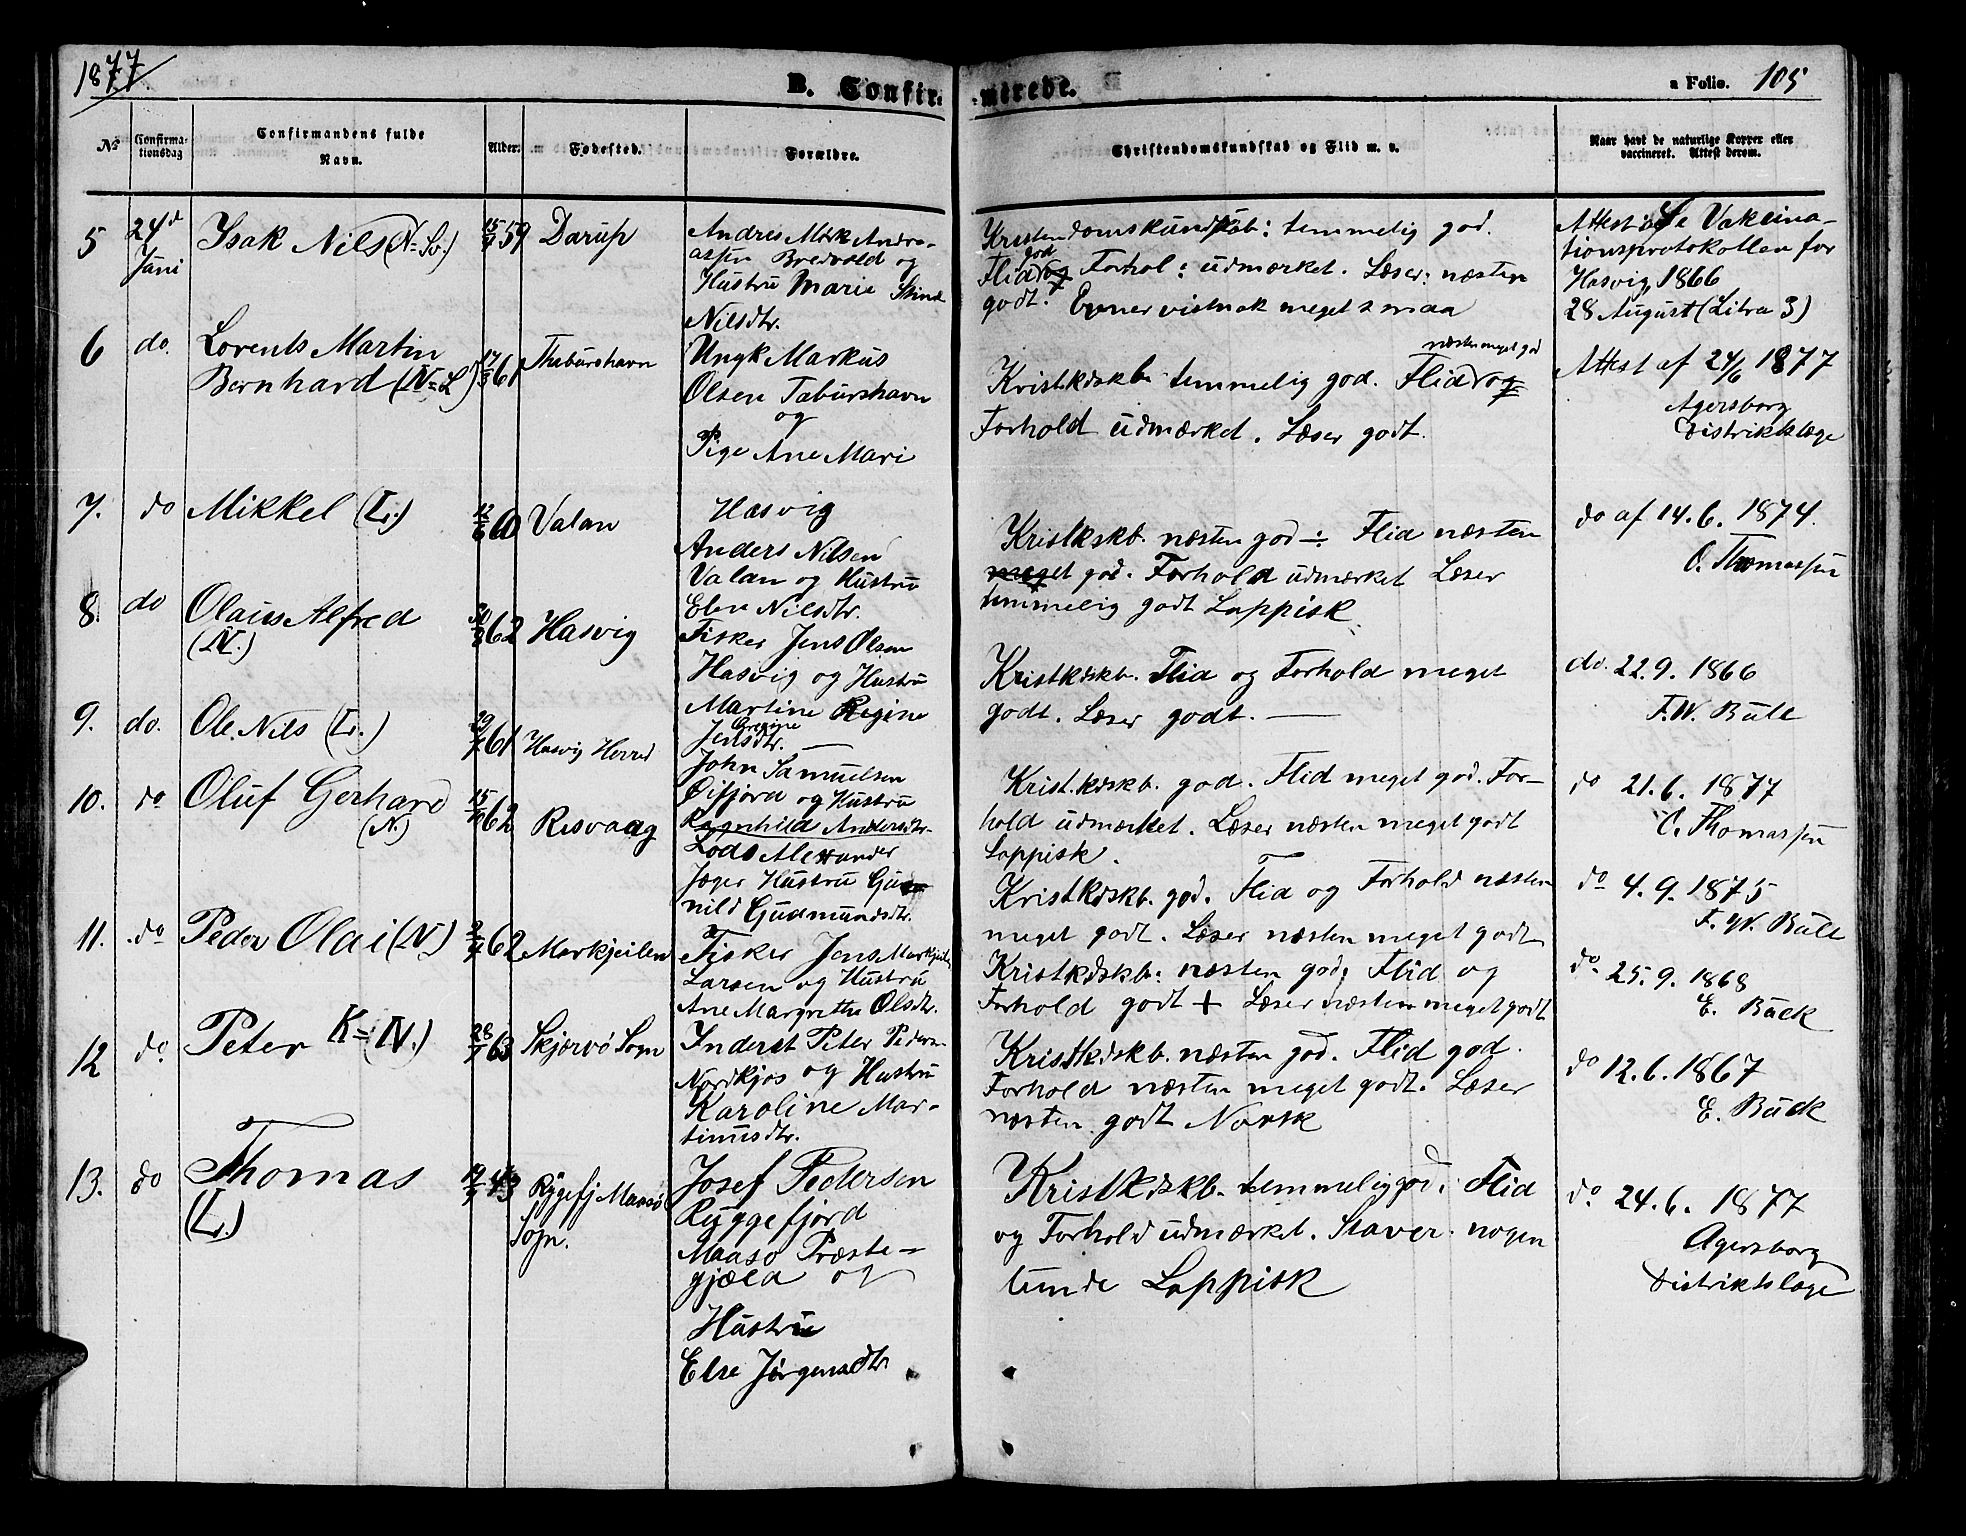 1877.
B. Confir- -merede.
a Folio. 105
No
Confirma-
tionsdag
Confirmandens fulde
Navn.
Alder.
Fødested.
Forældre.
Christendomskundskab og Flid m. v.
Naar havt de naturlige Kopper eller
vaccineret. Attest derom.
5
24d
Juni
Isak Nils (N=Lp.)
59
Darup
Andres Mork Andre-
assen Bredvold og
Hustru Marie Stine
Nilsdtr.
Kristendomskundskab: temmelig god.
Flid god Forhol: udmærket. Læser: næsten
godt. Evner vistnok meget smaa
Attest se Vakcina-
tionsprotokollen for
Hasvig 1866
28 August (Litra 3)
6
do.
Lorents Martin
Bernhard (N=L)
17/3 61
Thaburshavn
Ungk Markus
Olsen Taburshavn
og
Pige Ane Mari
Kristkdskb. temmelig god. Flid næsten meget god og
Forhold udmærket. Læser godt.
Attest af 24/6 1877
Agersborg
Distriktslæge
7.
do
Mikkel (L.)
12/6 60
Valan
Hasvig
Anders Nilsen
Valan og Hustru
Elen Nilsdtr.
Kristkdskb. næsten god ÷ Flid næsten
meget god. Forhold udmærket Læser
temmelig godt Lappisk.
do af 14.6. 1874.
O. Thomassen
8.
do
Olaus Alfred
(N.)
62
Hasvig
Fisker Jens Olsen
Hasvig og Hustru
Martine Regine
Jensdtr.
Kristkdskb. Flid og Forhold meget
godt. Læser godt. —
do. 22.9. 1866
F.W. Bull
9.
do.
Ole Nils (L.)
61
Hasvig Herred
John Samuelsen
Øifjord og Hustru
Ragnhild Andersdtr.
Krist.kdskb. god. Flid meget god. For-
hold udmærket. Læser næsten meget godt
Lappisk.
do 21.6. 1877
O. Thomassen
10.
do
Oluf Gerhard
(N.)
62
Risvaag
Lods Alexander
Jæger Hustru Gun-
nild Gudmundsdtr.
Kristkdskb. god. Flid og Forhold næsten
meget godt. Læser næsten meget godt
do 4.9. 1875
F.W. Bull
11.
do
Peder Olai (N)
62
Markjeilen
Fisker Jens Markjeilen
Larsen og Hustru
Ane Margrethe Olsdtr.
Kristkdskb: næsten god. Flid og
Forhold godt + Læser næsten meget godt
do 25.9. 1868
E. Buck
12
do
Peter K=(N.)
28/7 63
Skjærvø Sogn
Inderst Peter Peders.
Nordkjos og Hustru
Karoline Mar-
tinusdtr.
Kristkdskb. næsten god. Flid god.
Forhold næsten meget godt. Læser
næsten godt Norsk
do 12.6.1867
E. Buck
13.
do
Thomas
(L.)
43
Ryggefj Maasø
Sogn.
Josef Pedersen
Ryggefjord
Maasø Præste-
gjæld og
Hustru
Else Jørgensdtr.
Kristkdskb. temmelig god. Flid
og Forhold udmærket. Staver nogen
lunde Lappisk
do 24.6. 1877
Agersborg
Distriktslæge